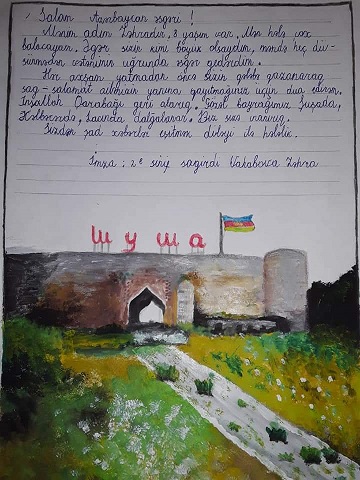 Salam Azərbaycan əsgəri!
Mənim adım Zəhradır, 8 yaşım var. Mən hələ çox
balacayam. Əgər sizin kimi böyük olsaydım, məndə heç dü-
şünmədən vətənimin uğrunda əsgər gedərdim.
Hər axşam yatmadan öncə sizin qələbə qazanaraq
sağ-salamat ailənizin yanına qayıtmağınız üçün dua edirəm.
İnşallah Qarabağı geri alarıq. Gözəl bayrağımız Şuşada,
Kəlbəcərdə, Laçında dalğalanar. Biz sizə inanırıq.
Sizdən şad xəbərlər eşitmək diləyi ilə hələlik.
İmza: 2ᵉ sinif şagirdi Vahabova Zəhra
Шуша